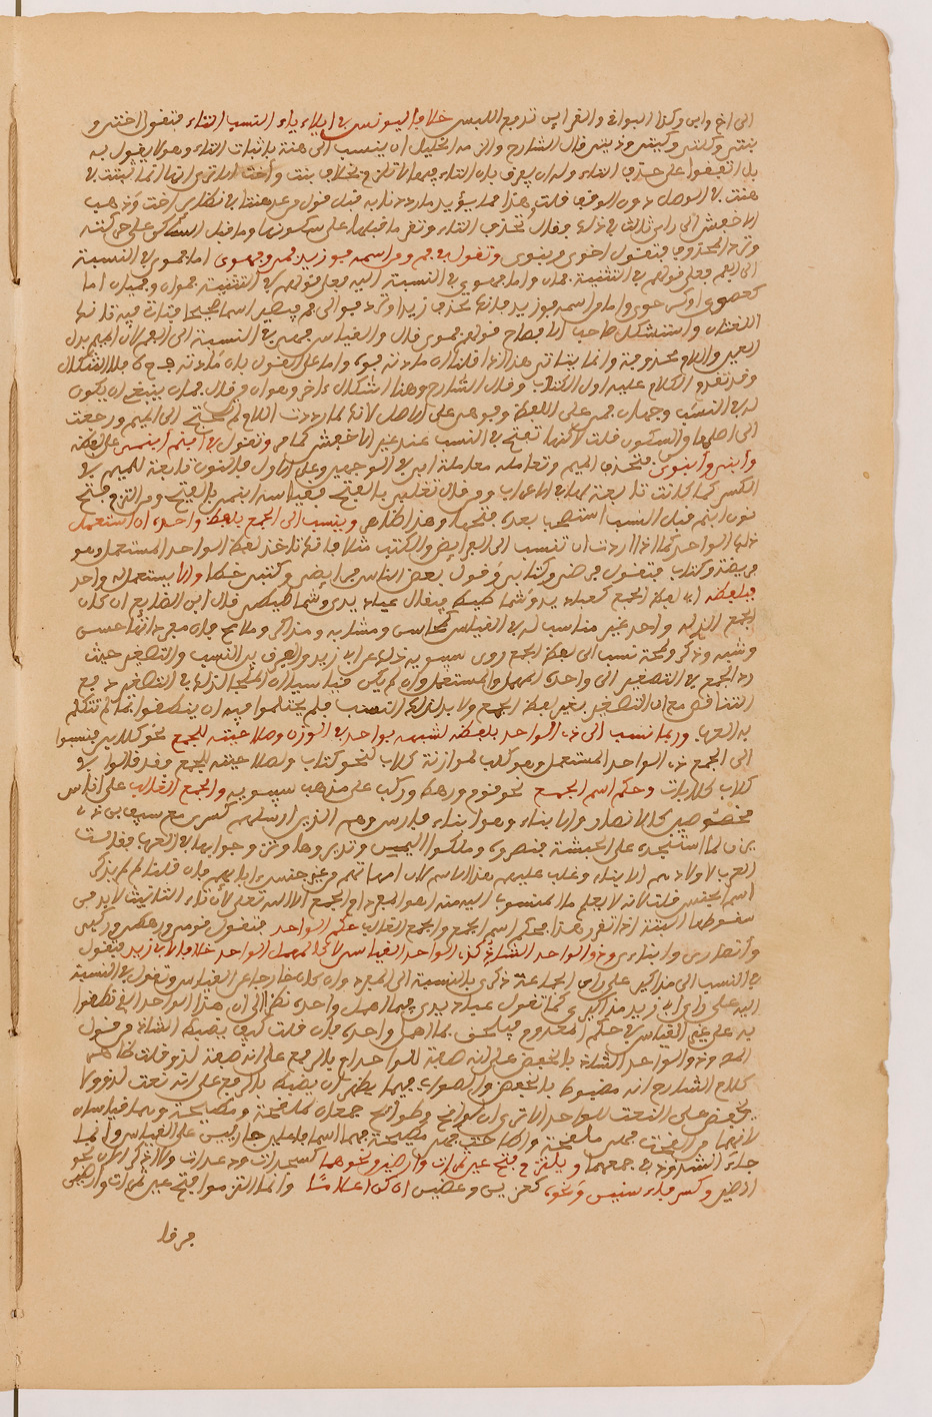 الى اخ وابن وكذا البواقي والفرا بس تدبع اللبس خلافا ليونس في ايلاء ياء النسب التاء فتقول اختي و
بنتي وكلتي وكيتي وذيتي قال الشارح والزمه الخليل ان ينسب الى هنة باثبات التاء وهو لا يقول به
بل اتفقوا على حذف التاء وله ان يفرق بان التاء فيهما لا تلزم بخلاف بنت وأخت الا ترى انها انما تثبت في
هنت في الوصل دون الوقف قلت وهذا مما يؤيد ما رددنا به قبل قول من عد هنتا في نظائر اخت وذهب
الاخفش الى راي ثالث في ذلك فقال تحذف التاء وتقر ما قبلها على سكونها وما قبل الساكن على حركته
وترد المحذوف فتقول اخوي وبنوي وتقول في فم ومن اسمه فو زيد فمي وفموي اما فموي في النسبة
الى الفم فعلى قولهم في التثنية فمان واما فموي في النسبة اليه فعلى قولهم في التثنية فموان وفميان اما
كعصوي او كرحوي واما من اسمه فو زيد فانك تحذف زيدا وترد فو الى فم فيصير اسما صحيحا فتأتي فيه تانك
اللغتان واستشكل صاحب الافصاح قولهم فموي قال والقياس فمي في النسبة الى الفم لان الميم بدل
العين واللام محذوفة وانما يتأتى هذا اذا قلنا ان مادته فوه واما على القول بان مادته ف م ي فلا اشكال
وقد تقدم الكلام عليه اول الكتاب وقال الشارح وهنا اشكال ءاخر وهو انه قال فمان ينبغي ان يكون
له في النسب وجهان فمي على اللفظ وفوهي على الاصل لانك لما رددت اللام لم تحتج الى الميم ورجعت
الى اصلها والسكون قلت لاكنها تفتح في النسب عند غير الاخفش كما مر وتقول في ابنم ابنمي على لفظه
وابني وبنوي فتحذف الميم وتعامله معاملة ابن في الوجهين وعلى الاول فالنون تابعة للميم في
الكسر كما كانت تابعة لها في الاعراب ومن قال تغلبي بالفتح فقياسه ابنمي بالفتح ومن التزم فتح
نون ابنم قبل النسب استصحب بعده فتحها وهذا ظاهر وينسب الى الجمع بلفظ واحده ان استعمل
ذلك الواحد كما اذا اردت ان تنسب الى الفرايض والكتب مثلا فانك تاخذ لفظ الواحد المستعمل وهو
فريضة وكتاب فتقول فرضي وكتابي وقول بعض الناس فرايضي وكتبي خطا والا يستعمل له واحد
فبلفظه اي لفظ الجمع كعباديد وشماطيط فيقال عباديدي وشماطيطي قال ابن الضايع ان كان
الجمع الذي له واحد غير مناسب له في القياس كمحاسن ومشابه ومذاكر وملامح فان مفرداتها حسن
وشبه وذكر ولمحة نسب الى لفظ الجمع روى سيبويه ذلك عن ابي زيد والفرق بين النسب والتصغير حيث
رد الجمع في التصغير الى واحده المهمل والمستعمل وان لم يكن قياسيا ان الملجا لذلك في التصغير دفع
التناقض مع ان التصغير يغير لفظ الجمع ولا بد كذلك النسب فلم يحتملوا فيه ان ينطقوا بما لم تتكلم
به العرب وربما نسب الى ذي الواحد بلفظه لشبهه بواحد في الوزن وصلاحيته للجمع نحو كلابي فينسبوا
الى الجمع ذي الواحد المستعمل وهو كلب لموازنة كلاب لنحو كتاب وصلاحيته للجمع فقد قالوا في
كلاب كلابات وحكم اسم الجمع نحو قوم ورهط وركب على مذهب سيبويه والجمع الغالب على اناس
مخصوصين كالانصار والابناء وهو ابناء فارس وهم الذين ارسلهم كسرى مع سيف بن ذي
يزن لما استنجده على الحبشة فنصروه وملكوا اليمن وتديروها وتزوجوا بها في العرب فقالت
العرب لاولادهم الابناء وغلب عليهم هذا الاسم لان امهاتهم من غير جنس ءابائهم فان قلت لم لم يذكر
اسم الجنس قلت لانه لا يعلم هل المنسوب اليه منه اهو المفرد او الجمع الا ان ... لأن تاء التانيث لا بد من
سقوطها البتة اذا تقرر هذا فحكم اسم الجمع والجمع الغالب حكم الواحد فتقول قومي ورهطي وركبي
وأنصاري وابناءي وذو الواحد الشاذ كذي الواحد القياسي لا كالمهمل الواحد خلافا لابي زيد فتقول
في النسب الى مذاكير على راي الجماعة ذكري بالنسبة الى المفرد وان كان خارجا عن القياس وتقول في النسبة
اليه على راي ابي زيد مذاكيري كما تقول عباديدي فيما اهمل واحده نظرا الى ان هذا الواحد الذي نطقوا
به على غير القياس في حكم المعدوم فيلحق بما اهمل واحده فان قلت كيف يضبط الشاذ من قول
المص وذو الواحد الشاذ بالخفض على انه صفة للواحد او بالرفع على انه صفة لذو قلت ظاهر
كلام الشارح انه مضبوط بالخفض والصواب فيما يظهر ان يضبط بالرفع على انه نعت لذو ولا
يخفض على النعت للواحد الا ترى ان لواقح وطوايح جمعان لملقحة ومطيحة وهما قياسان
لانهما من القحت فهي ملقحة واطاحت فهي مطيحة فهما اسما فاعلين جاريين على القياس وانما
جاء الشذوذ في جمعهما ويلتزم فتح عين تمرات وارضين ونحوهما كسجدات ودعدات ولا اذكر الان نحو
ارضين وكسر فاء سنين ونحوه كعزين وعضين ان كن اعلاما وانما التزموا فتح عين تمرات وارضين
فرقا